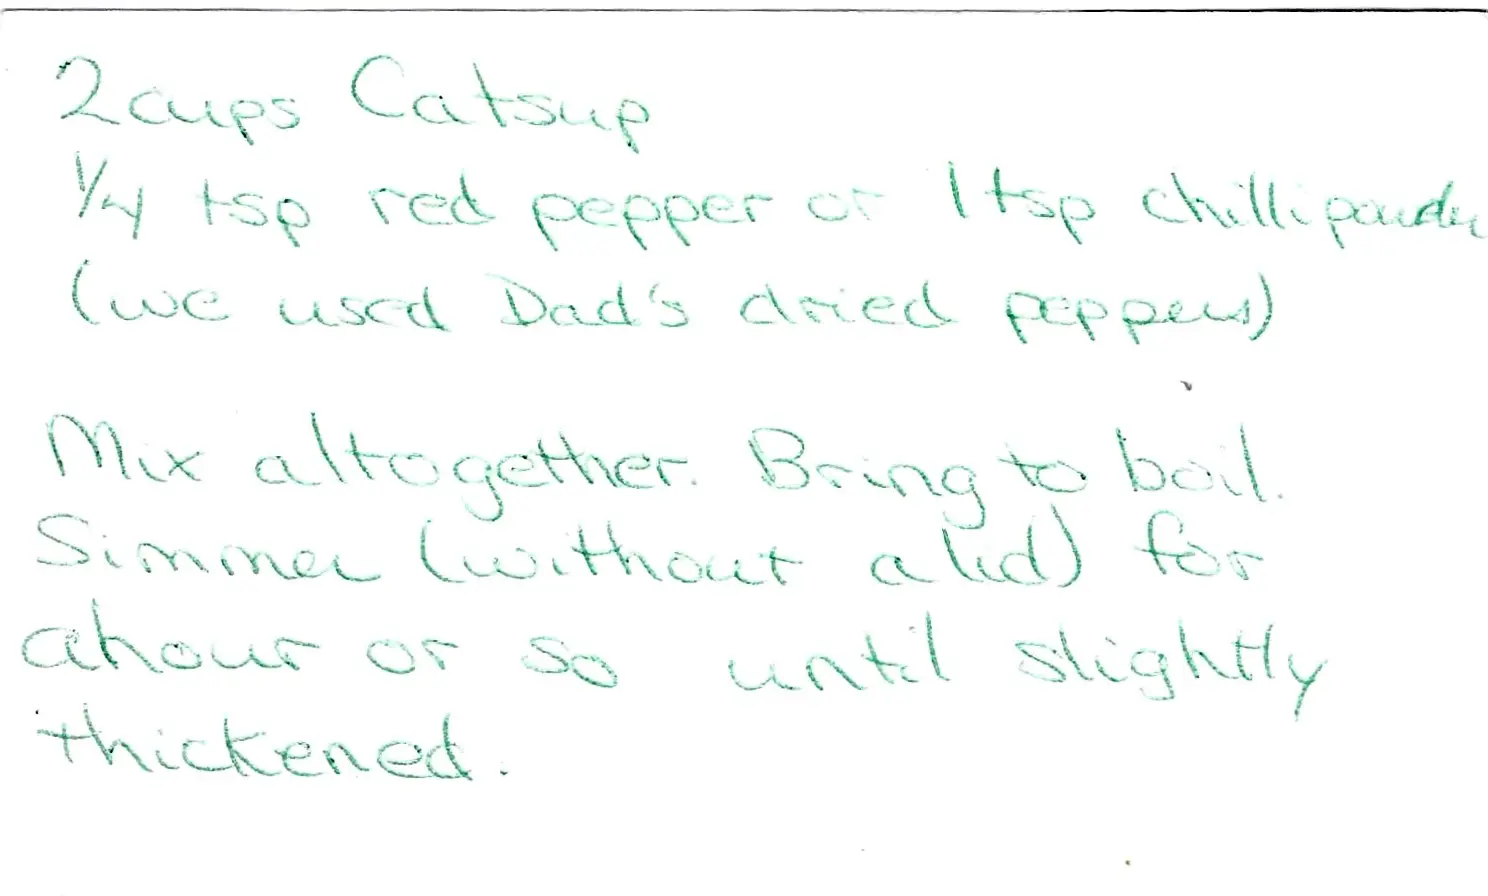 2 cups Catsup
1/4 tsp red pepper or 1 tsp chilli powder
(we used Dad's dried peppers)
Mix altogether. Bring to boil.
Simmer (without a lid) for
a hour or so until slightly
thickened.